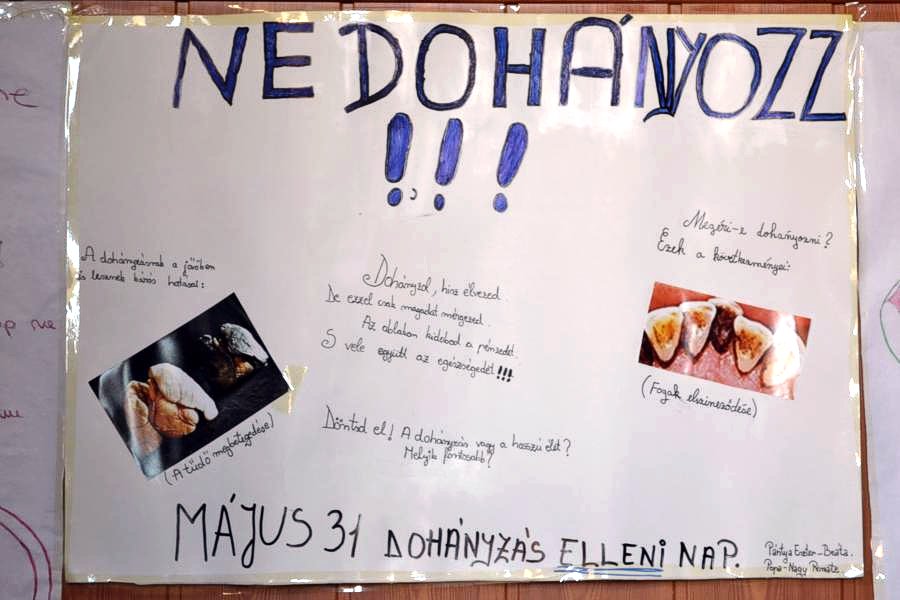 NE DOHÁNYOZZ
!!!
A dohányzásnak a jövőben
is lesznek káros hatásai:
(A tüdő megbetegedése)
Dohányzol, hisz élvezed.
De ezzel csak magadat mérgezed.
Az ablakon kidobod a pénzedet.
S vele együtt az egészségedet!!!
Döntsd el! A dohányzás vagy a hosszú élet?
Melyik fontosabb?
Megéri-e dohányozni?
Ezek a következményei:
(Fogak elszíneződése)
MÁJUS 31 DOHÁNYZÁS ELLENI NAP.
Pántya Eszter-Beáta.
Papa-Nagy Renáta.